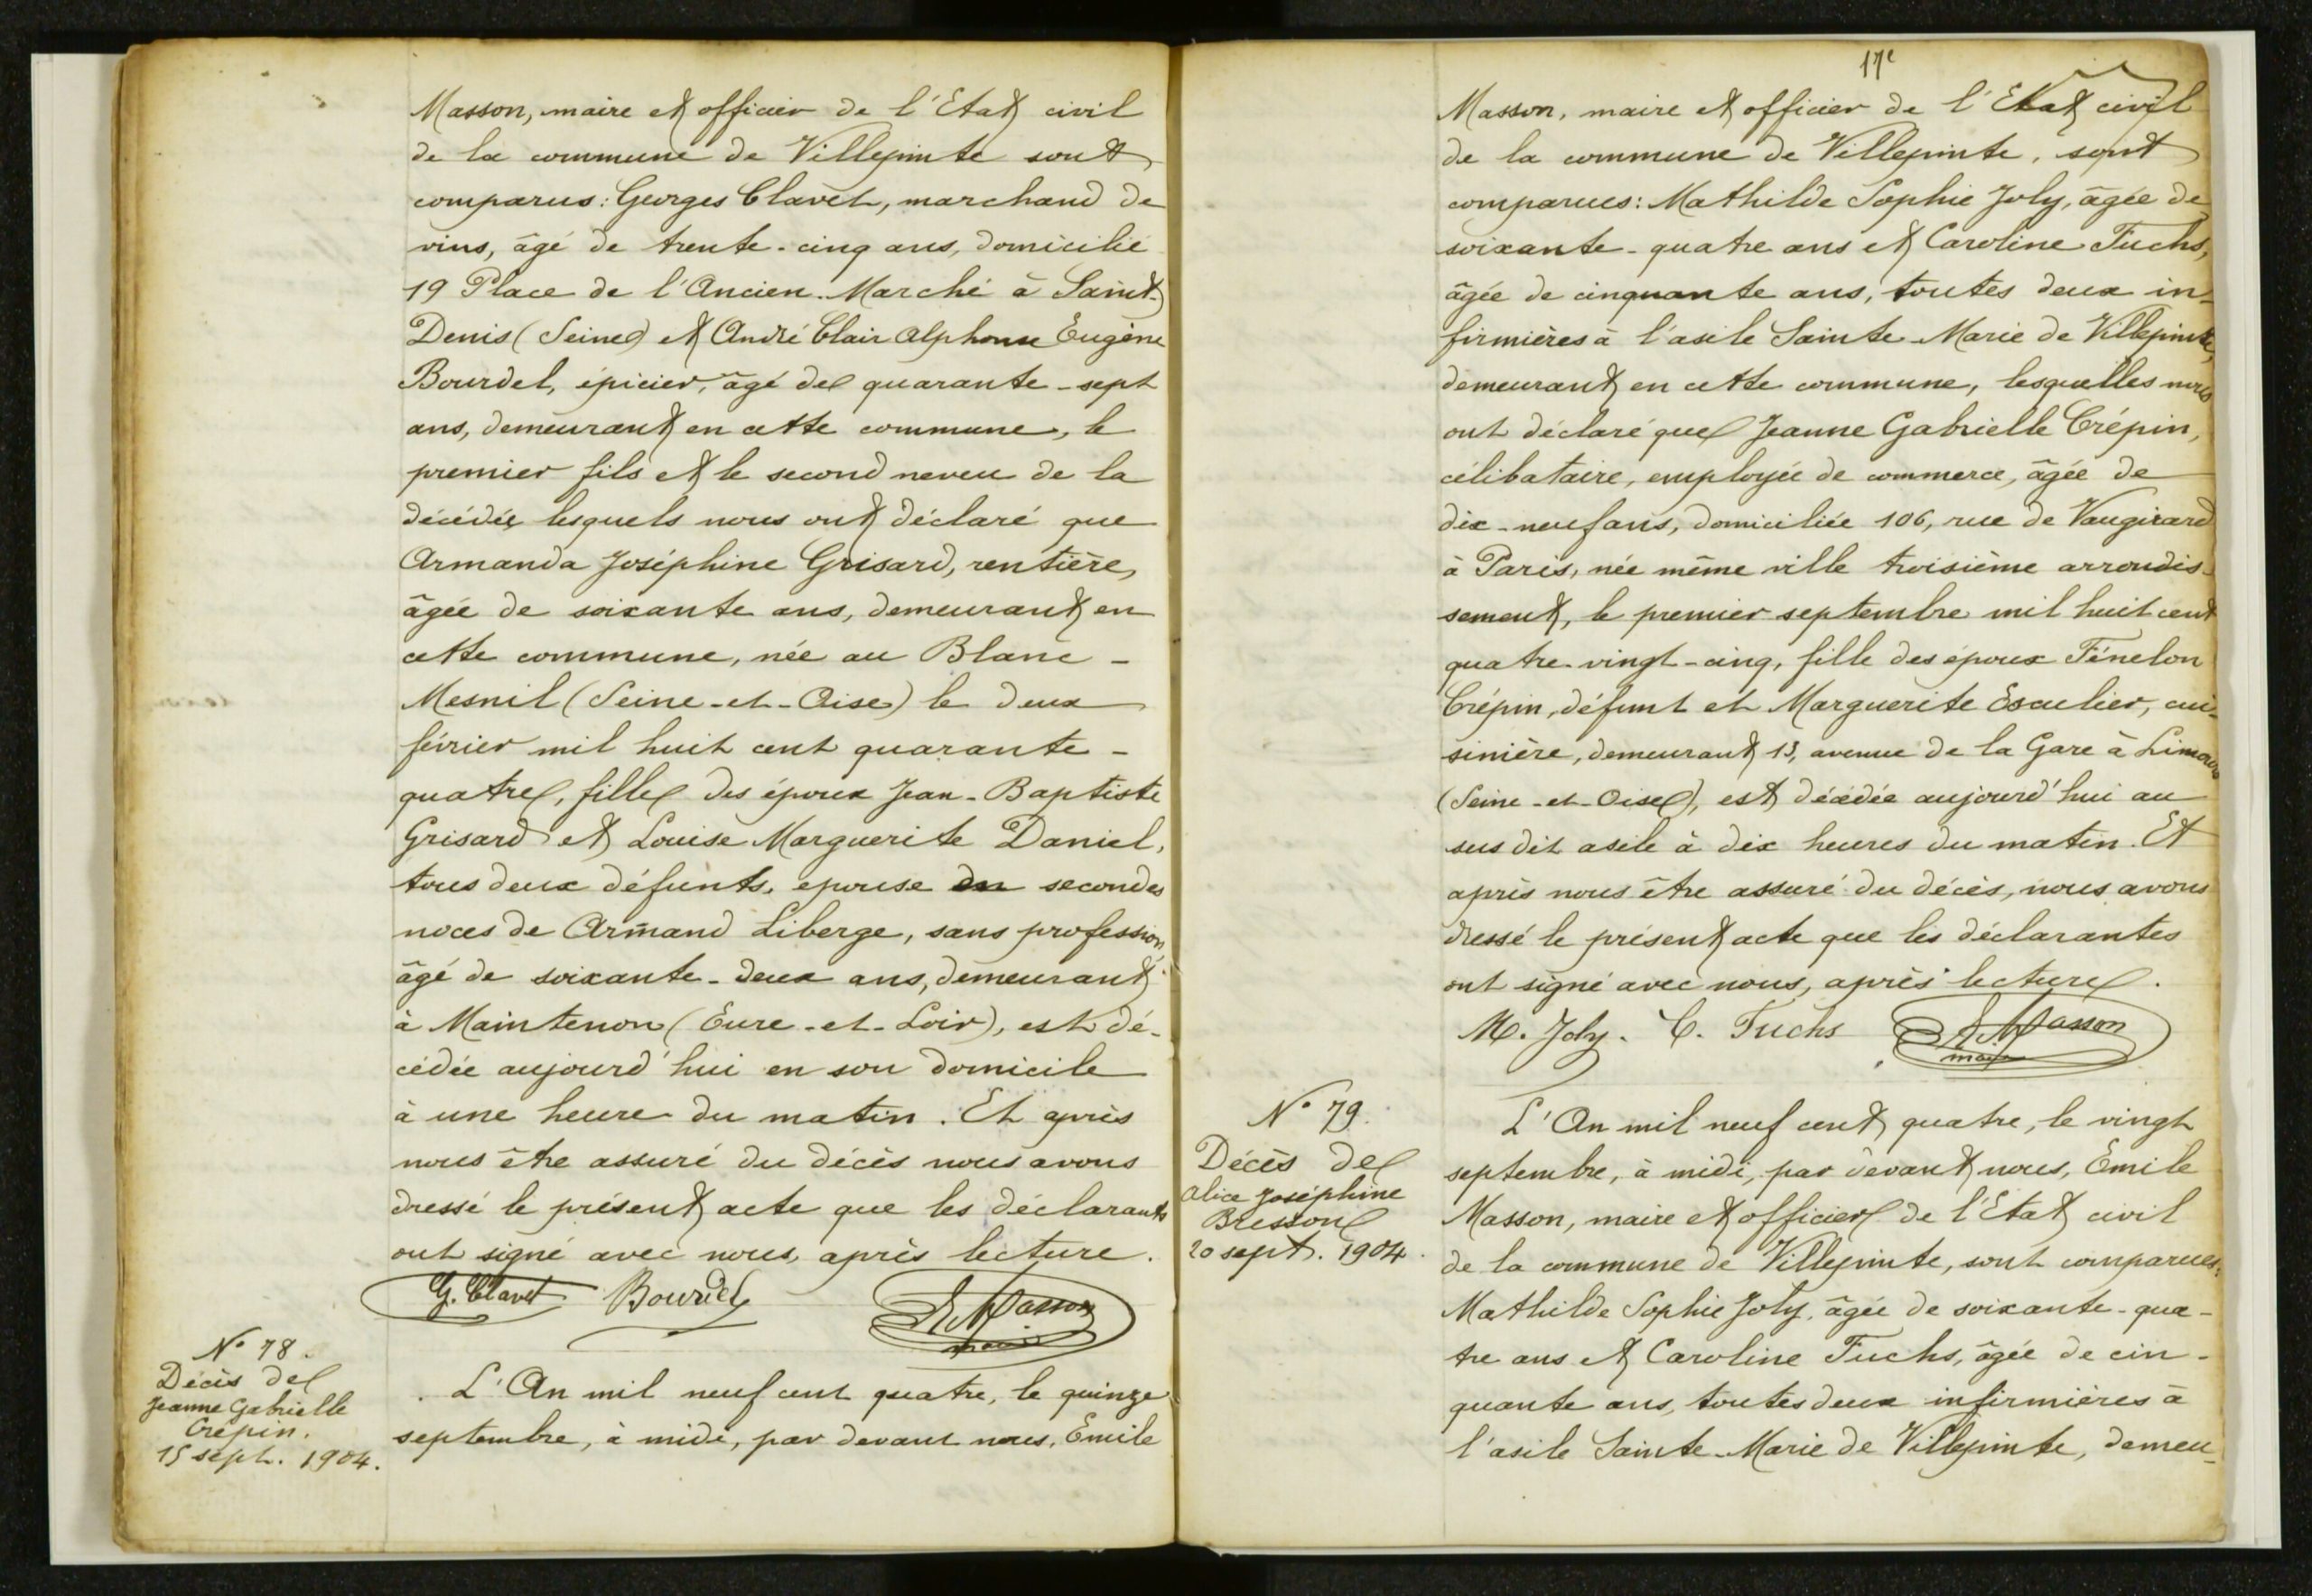 Masson, maire et officier de l'Etat civil
de la commune de Villepinte sont
comparus: Georges Clavet, marchand de
vins, âgé de trente-cinq ans, domicilié
19 Place de l'Ancien-Marché à Saint-
Denis (Seine) et André Clair Alphonse Eugène
Bourdel, épicier, âgé de quarante-sept
ans, demeurant en cette commune, le
premier fils et le second neveu de la
décédée, lesquels nous ont déclaré que
Armanda Joséphine Grisard, rentière,
âgée de soixante ans, demeurant en
cette commune, née au Blanc-
Mesnil (Seine-et-Oise) le deux
février mil huit cent quarante-
quatre, fille des époux Jean-Baptiste
Grisard et Louise Marguerite Daniel,
tous deux défunts, epouse en secondes
noces de Armand Liberge, sans profession,
âgé de soixante-deux ans, demeurant
à Maintenon (Eure-et-Loir), est dé-
cédée aujourd'hui en son domicile
à une heure du matin. Et après
nous être assuré du décès nous avons
dressé le présent acte que les déclarants
ont signé avec nous, après lecture.
G. Clavet Bourdel E. Masson
maire
N° 78.
Décès de
Jeanne Gabrielle
Crépin.
15 sept. 1904.
L'An mil neuf cent quatre, le quinze
septembre, à midi, par devant nous, Emile
17e
Masson, maire et officier de l'Etat civil
de la commune de Villepinte, sont
comparues: Mathilde Sophie Joly, âgée de
soixante-quatre ans et Caroline Fuchs,
âgée de cinquante ans, toutes deux in-
firmières à l'asile Sainte-Marie de Villepinte,
demeurant en cette commune, lesquelles nous
ont déclaré que Jeanne Gabrielle Crépin,
célibataire, employée de commerce, âgée de
dix-neuf ans, domiciliée 106, rue de Vaugirard
à Paris, née même ville troisième arrondis-
sement, le premier septembre mil huit cent
quatre-vingt-cinq, fille des époux Fénelon
Crépin, défunt et Marguerite Esculier, cui-
sinière, demeurant 13, avenue de la Gare à Limours
(Seine-et-Oise), est décédée aujourd'hui au
sus dit asile à dix heures du matin. Et
après nous être assuré du décès, nous avons
dressé le présent acte que les déclarantes
ont signé avec nous, après lecture.
M. Joly. C. Fuchs E. Masson
maire
N° 79.
Décès de
Alice Joséphine
Bresson
20 sept. 1904.
L'An mil neuf cent quatre, le vingt
septembre, à midi, par devant nous, Emile
Masson, maire et officier de l'Etat civil
de la commune de Villepinte, sont comparues:
Mathilde Sophie Joly, âgée de soixante-qua-
tre ans et Caroline Fuchs, âgée de cin-
quante ans, toutes deux infirmières à
l'asile Sainte-Marie de Villepinte, demeu-